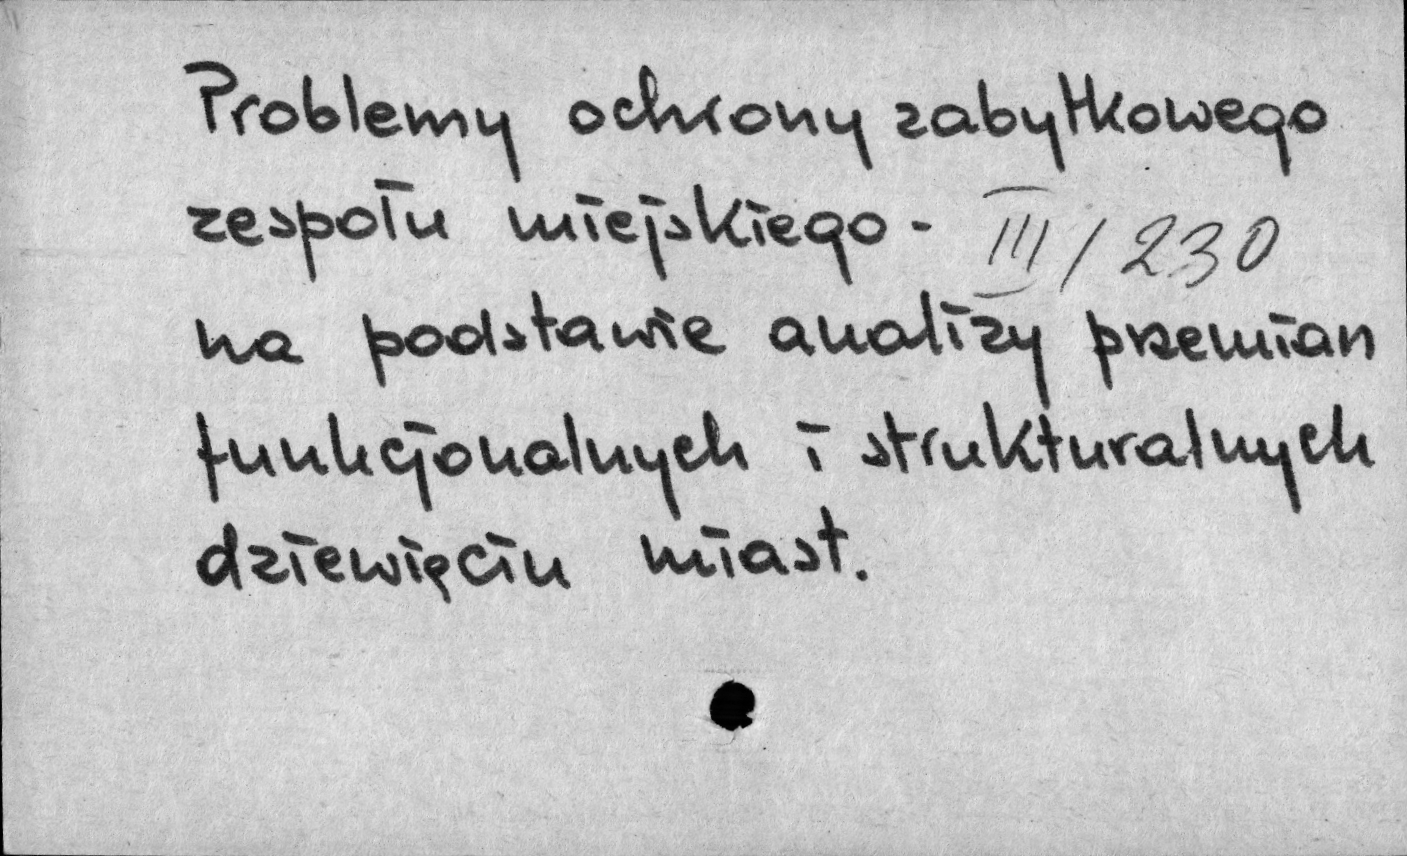 Problemy ochrony zabytkowego
zespołu miejskiego - III/230
na podstawie analizy przemian
funkcjonalnych i strukturalnych
dziewięciu miast.